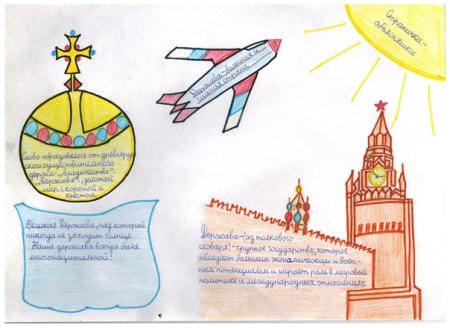 Страничка-
объяснялка
Держава-большая и
сильная страна
Слово образовалось от древнерус-
ского существительного
держа- "владычество".
"Держава"- золотой
шар с короной и
крестом
Великая Держава, над которой
никогда не заходит солнце.
Наша держава всегда была
многонациональной!
Держава- (из толкового
словаря)- крупное государство, которое
обладает большим экономическим и воен-
ным потенциалом и играет роль в мировой
политике и международных отношениях